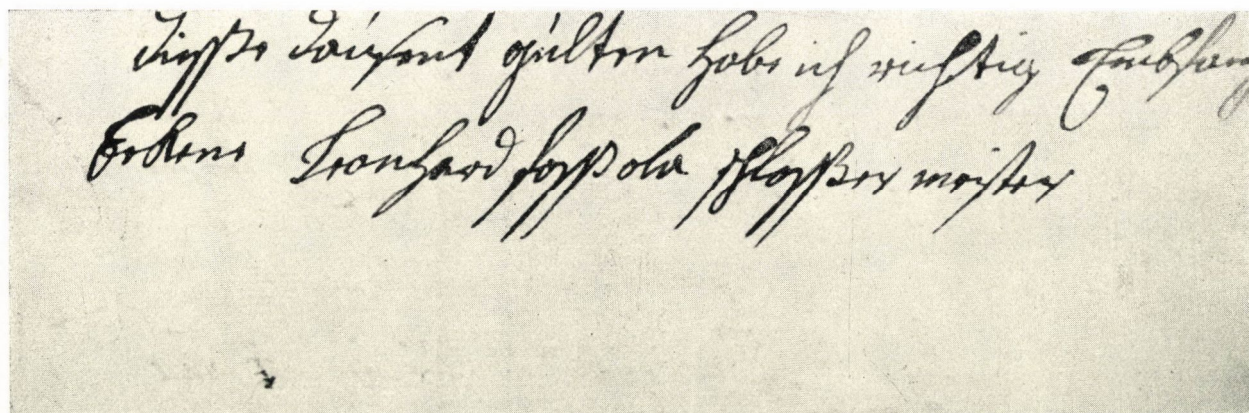 diesße dausent gulten habe ich richtig Embfang
bekene Leonhard schlosßer meister